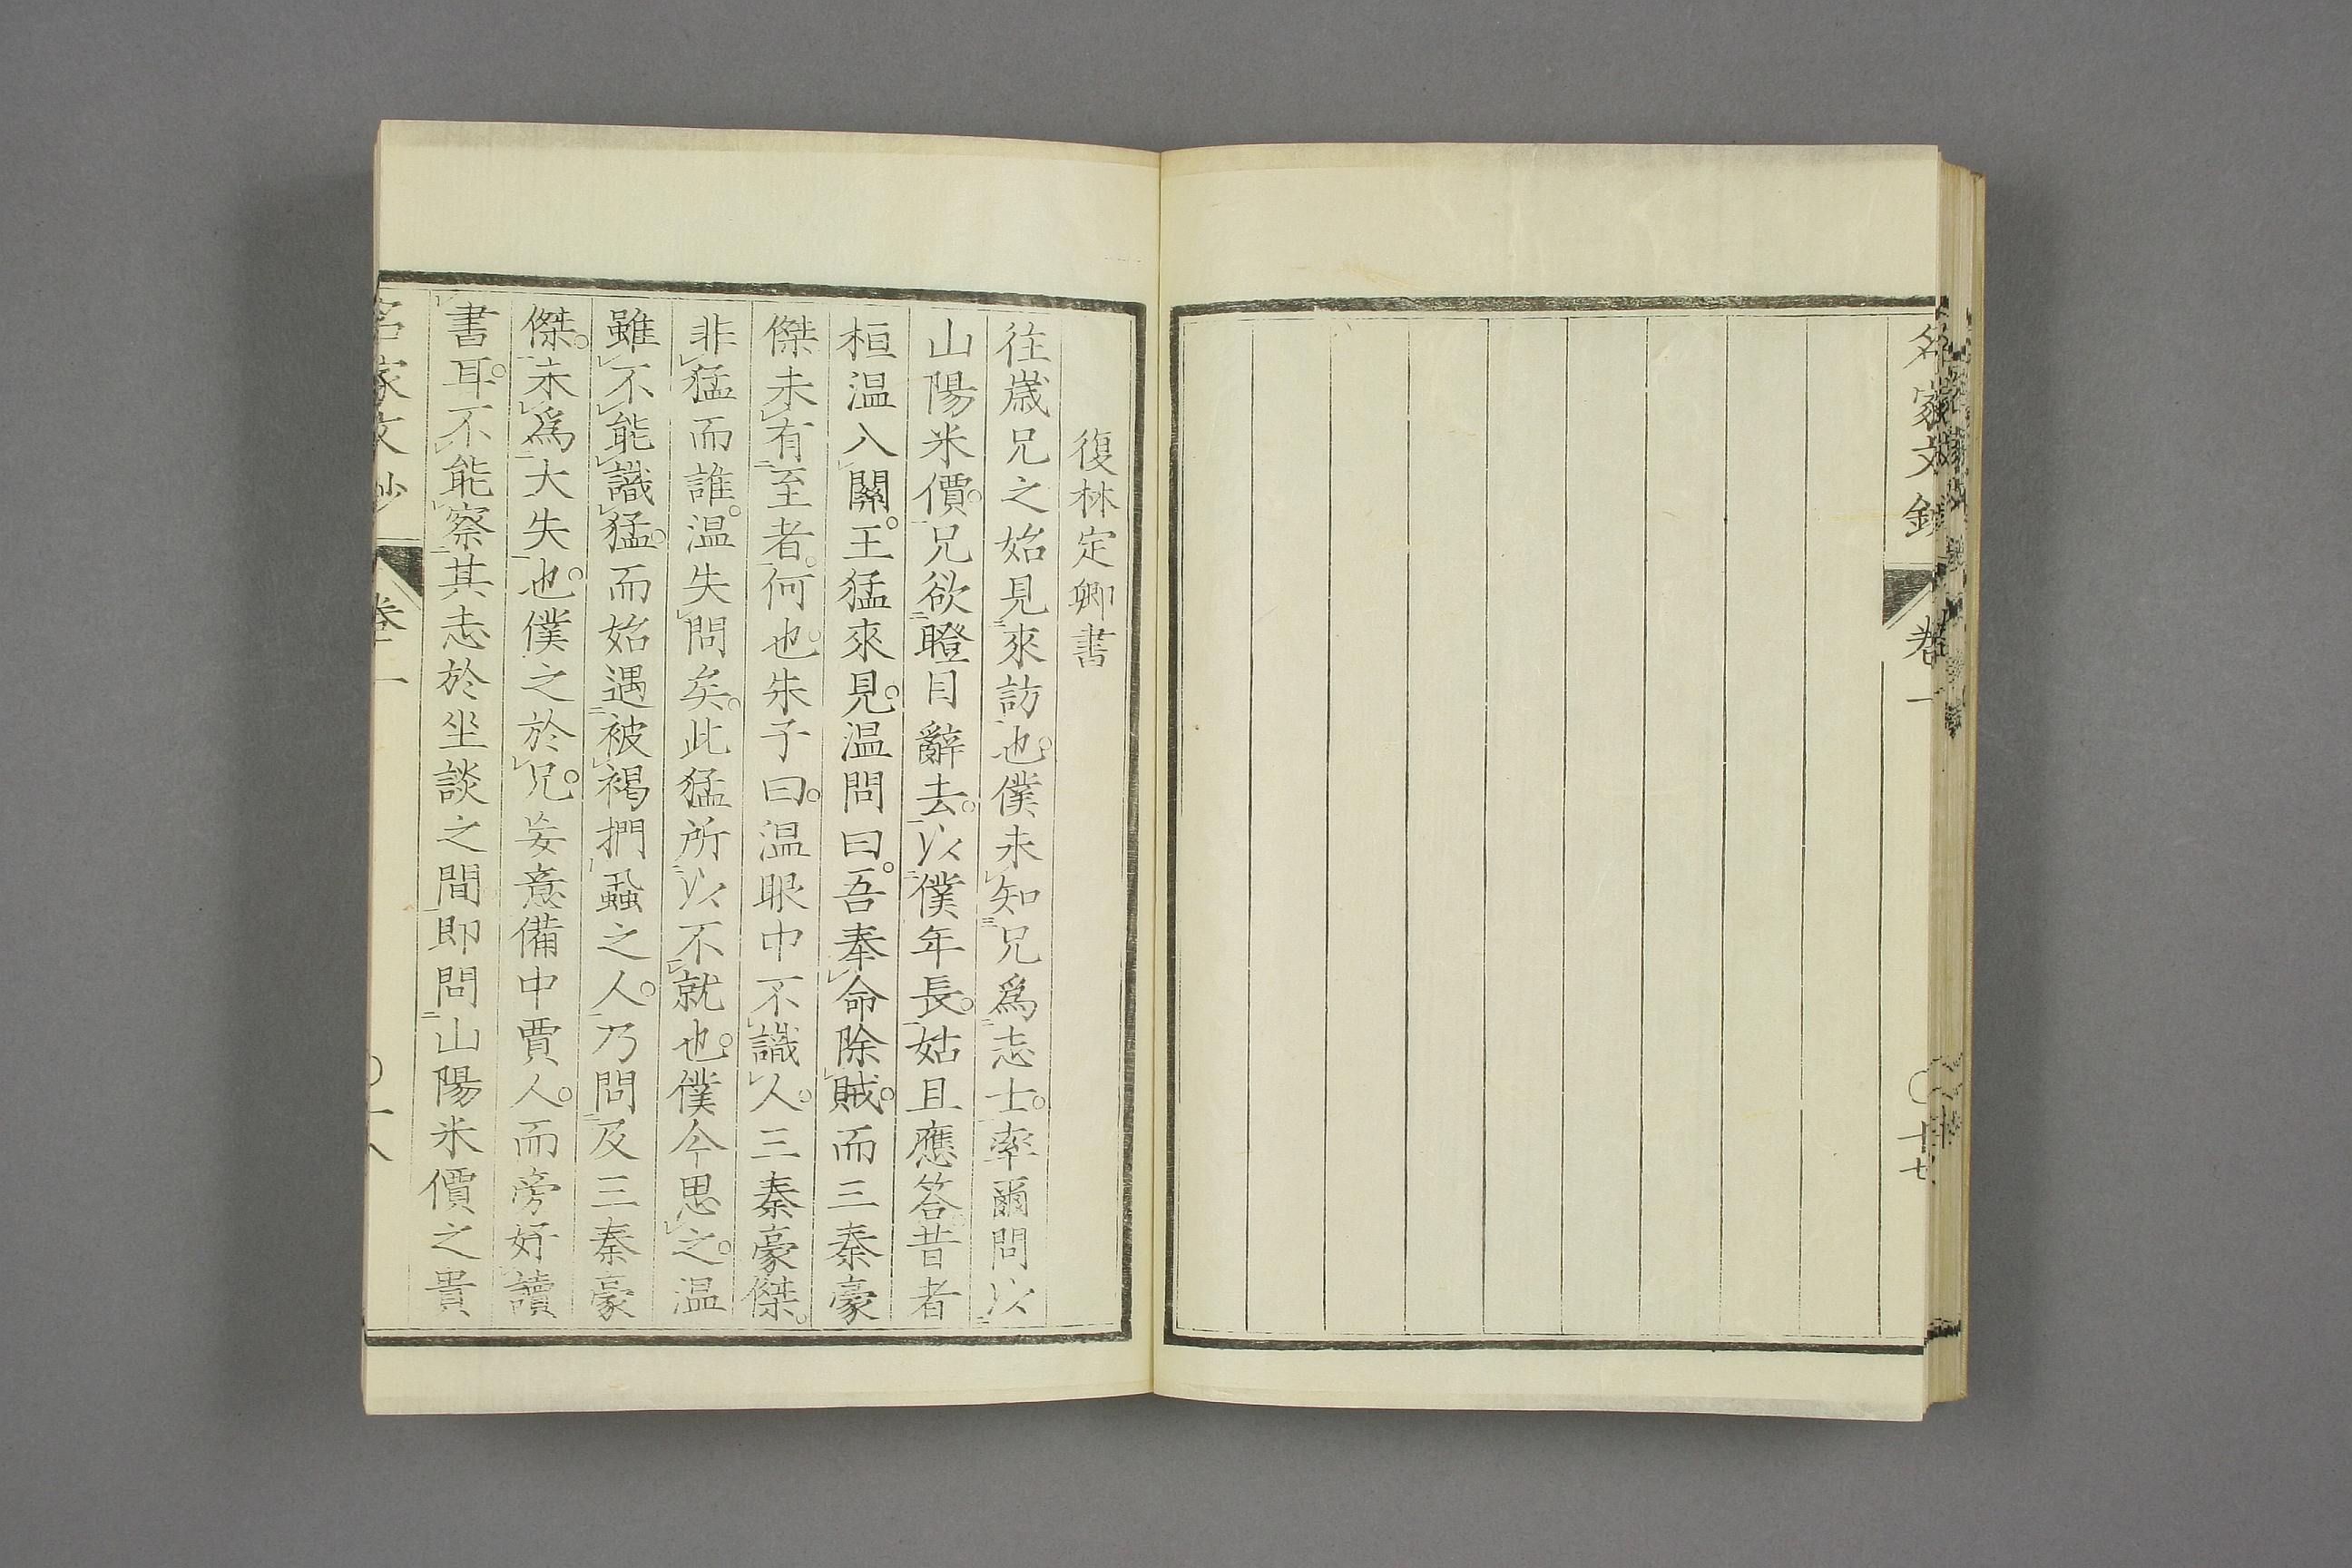 名家文鈔
卷一
〇十七
復林定卿書
往歲兄之始見來訪也。僕未知兄爲志士。率爾問以
山陽米價。兄欲瞪目辭去。以僕年長。姑且應答。昔者
桓温入關。王猛來見。温問曰。吾奉命除賊。而三秦豪
傑未有至者。何也。朱子曰。温眼中不識人。三秦豪傑。
非猛而誰。温失問矣。此猛所以不就也。僕今思之。温
雖不能識猛。而始遇被褐捫蝨之人。乃問及三秦豪
傑。未爲大失也。僕之於兄。妄意備中賈人。而旁好讀
書耳。不能察其志於坐談之間。卽問山陽米價之貴
名家文鈔
卷一
〇十八